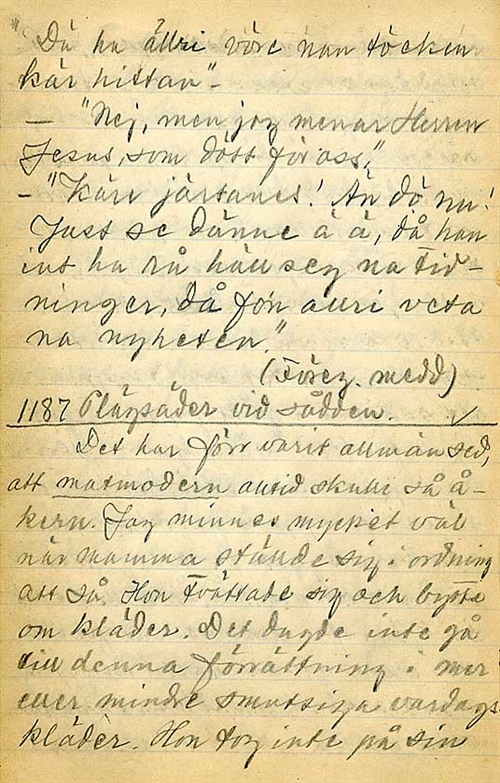 "Dä ha ållri vöre nan töcken
kär hittan" –
– "Nej, men jag menar Herren
Jesus, som dött för oss."
– "Kära järtanes! Än dö nu.
Just se dänne ä ä, då han
int ha rå håll seg na tid-
ninger, då får allri veta
na nyheten."
(Föreg. medd)
1187 Plägsäder vid sådden. ✓
Det har förr varit allmän sed,
att matmodern alltid skulle så å-
kern. Jag minnes mycket väl
när mamma ställde sig i ordning
att så. Hon tvättade sig och bytte
om kläder. Det dugde inte gå
till denna förrättning i mer
eller mindre smutsiga vardags
kläder. Hon tog inte på sin